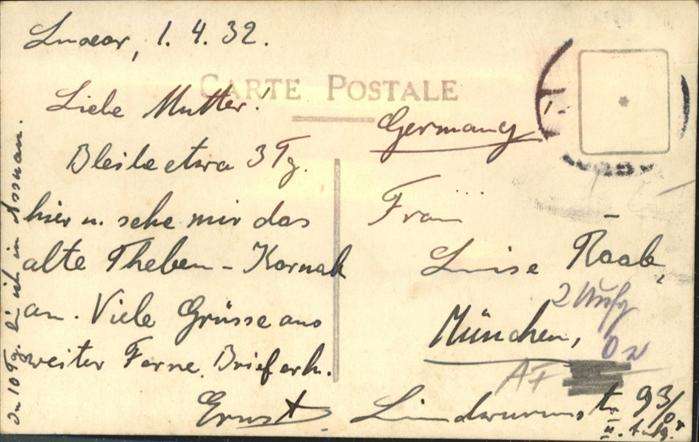 Luxor, 1.4.32.
CARTE POSTALE
Liebe Mutter!
Bleibe etwa 3 Tg.
hier u. sehe mir das
alte Theben - Karnak
an. Viele Grüsse aus
weiter Ferne. Brief erh.
Ernst
In 10 Tg. bin ich in Assuan.
Germany
Frau
Luise Raab,
München,
Lindwurmstr. 93/